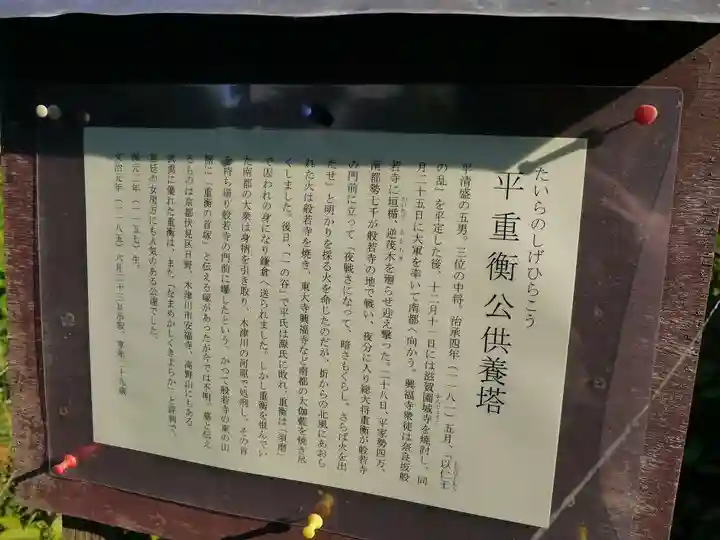 たいらのしげひらこう
平重衡公供養塔
平清盛の五男。三位の中将。治承四年(一一八一)五月、「以仁王
の乱」を平定した後、十二月十一日には滋賀園城寺を焼討し、同
月二十五日に大軍を率いて南都へ向かう。興福寺衆徒は奈良坂般
若寺に垣楯、逆茂木を廻らせ迎え撃った。二十八日、平家勢四万、
南都勢七千が般若寺の地で戦い、夜分に入り総大将重衡が般若寺
の門前に立って「夜戦さになって、暗さもくらし、さらば火を出
だせ」と明かりを採る火を命じたのだが、折からの北風にあおら
れた火は般若寺を焼き、東大寺興福寺など南都の大伽藍を焼き尽
くしました。後日、「一の谷」で平氏は源氏に敗れ、重衡は「須磨」
で囚われの身になり鎌倉へ送られました。しかし重衡を恨んでい
た南都の大衆は身柄を引き取り、木津川の河原で処刑し、その首
を持ち帰り般若寺の門前に曝したという。かつて般若寺の東の山
際に「重衡の首塚」と伝える塚があったが今では不明。墓と伝え
るものは京都伏見区日野、木津川市安福寺、高野山にもある
武勇に優れた重衡は、また、「なまめかしくきよらか」と評判で、
女房方にも人気のある公達でした。
保元二年(一一五七)生、
文治元年(一一八五)六月二十三日示寂、享年二十九歳